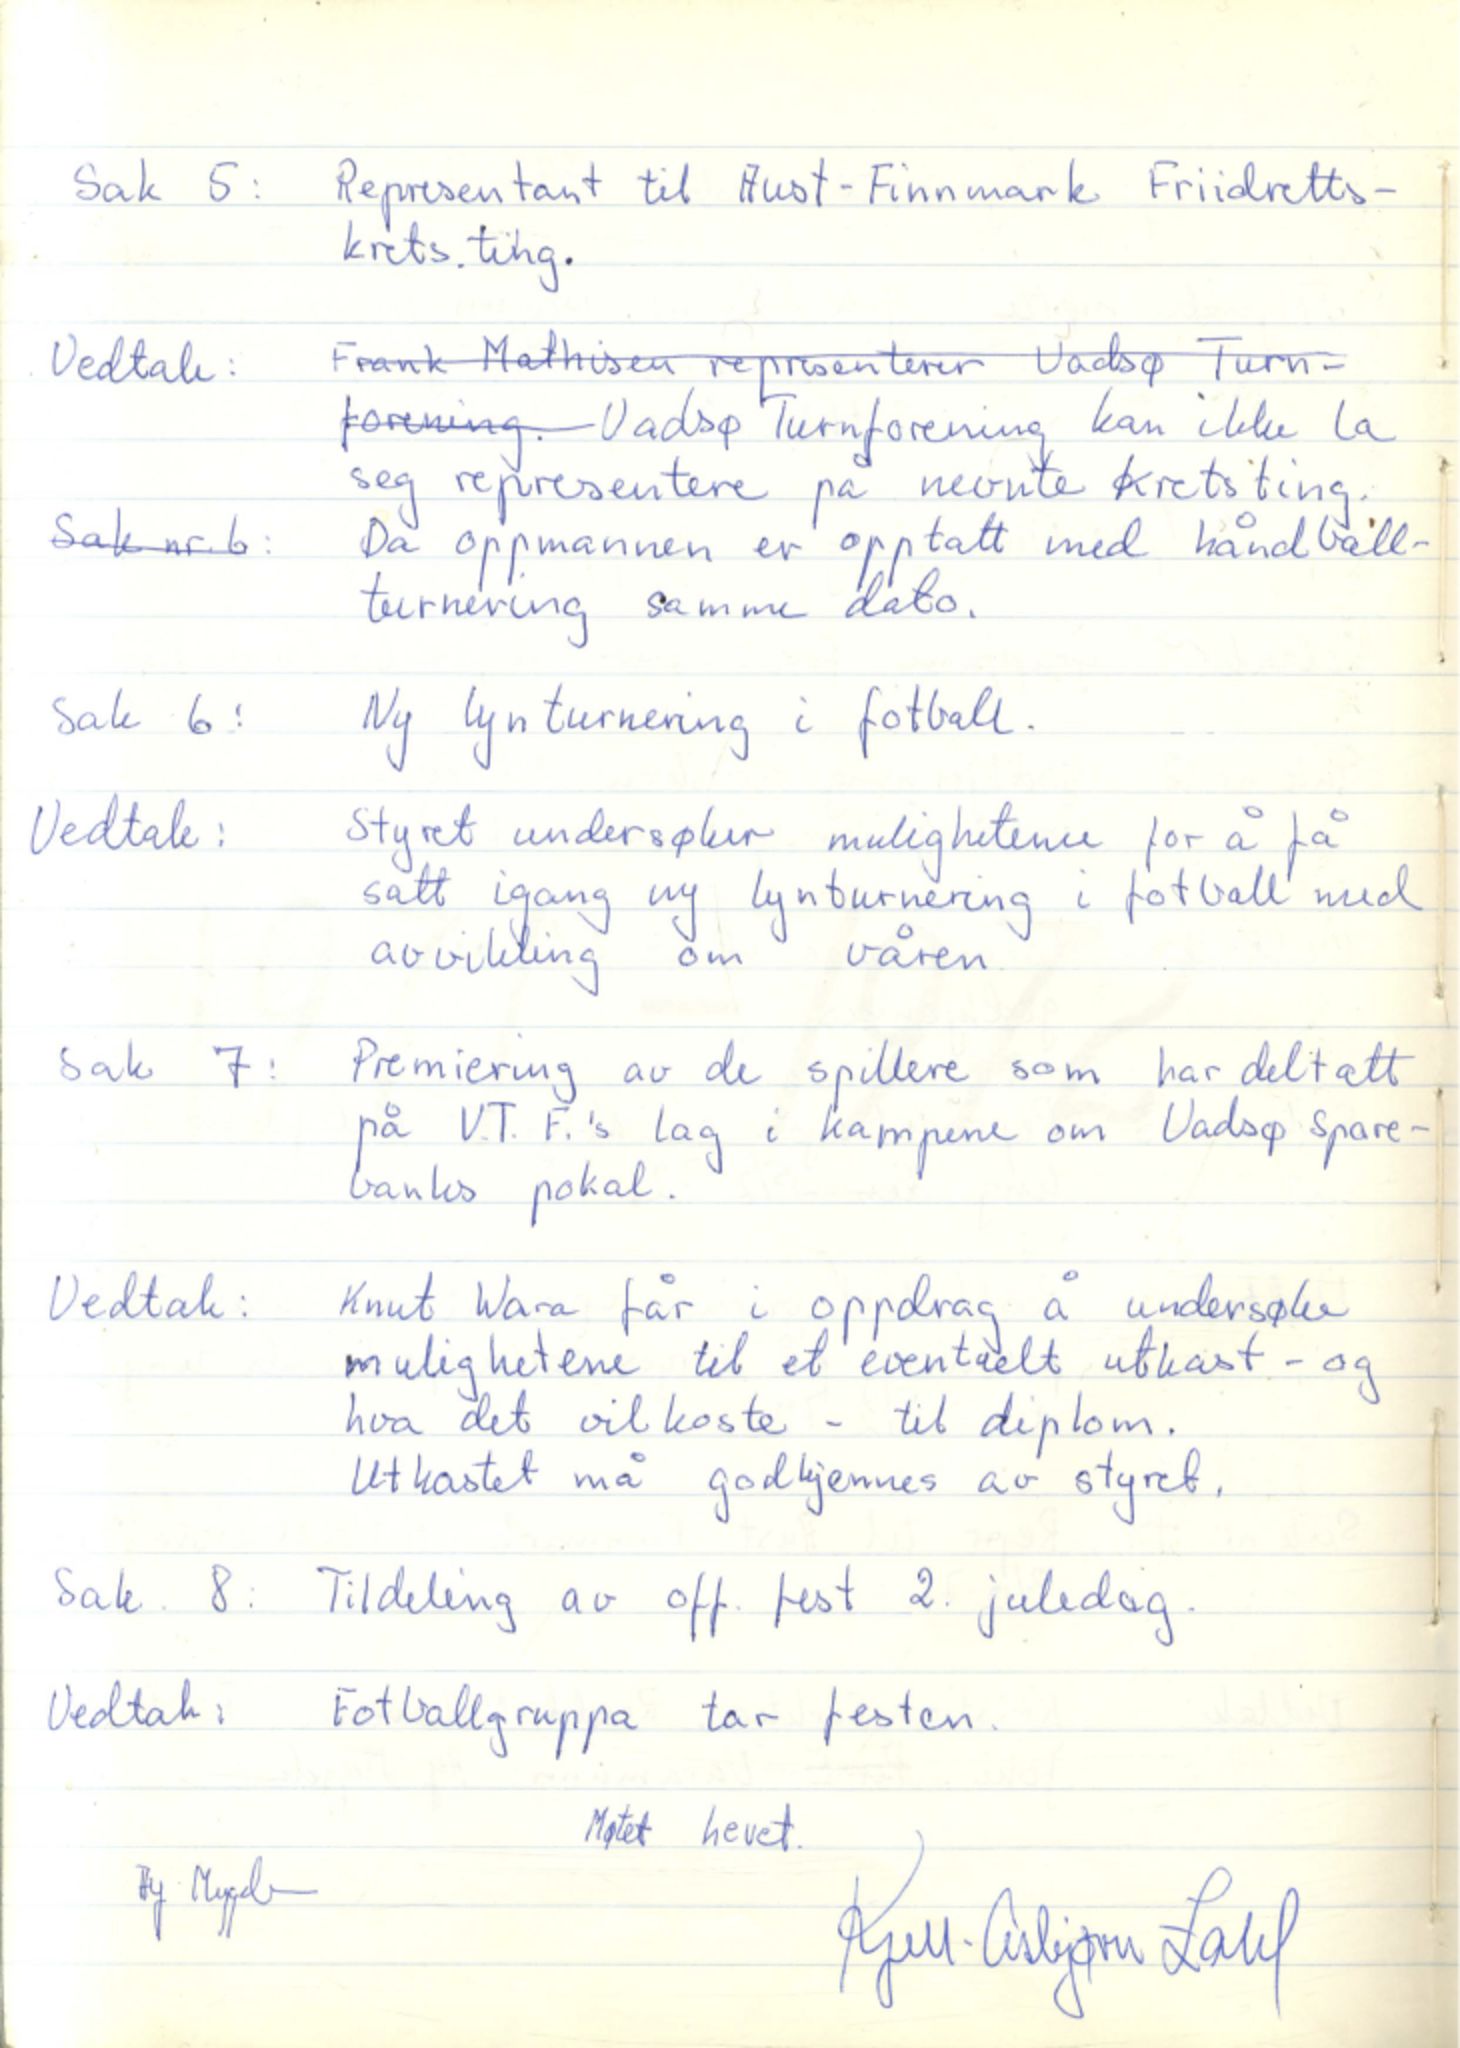 Sak 5: Representant til Aust-Finnmark Friidretts-
krets.ting.
Vedtak: Frank Mathisen representerer Vadsø Turn-
forening. Vadsø Turnforening kan ikke la
seg representere på nevnte kretsting.
Sak nr. 6: Da oppmannen er opptatt med håndball-
turnering samme dato.
Sak 6: Ny lynturnering i fotball.
Vedtak: Styret undersøker mulighetene for å få
satt igang ny lynturnering i fotball med
avvikling om våren
Sak 7: Premiering av de spillere som har deltatt
på V.T.F.'s lag i kampene om Vadsø Spare-
banks pokal.
Vedtak: Knut Wara får i oppdrag å undersøke
mulighetene til et eventuelt utkast - og
hva det vil koste - til diplom.
Utkastet må godkjennes av styret.
Sak 8: Tildeling av off. fest 2. juledag.
Vedtak: Fotballgruppa tar festen.
Møtet hevet.
Kjell-Asbjørn